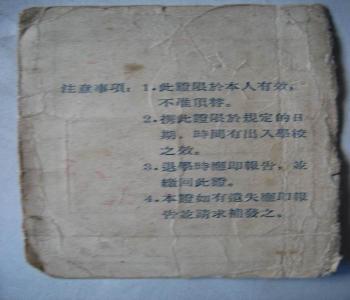 注意事項：1.此證限於本人有效，
不准頂替。
2.携此證限於規定的日
期，時間有出入學校
之效。
3.退學時應即報告，並
繳回此證。
4.本證如有遺失應即報
告並請求補發之。